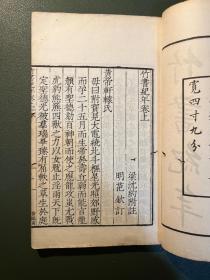 寬四寸九分
竹書紀年卷上
梁沈約附註
明范欽訂
黃帝軒轅氏
母曰附寶見大電繞北斗樞星光照郊野感
而孕二十五月而生帝於壽丘弱而能言龍
顏有聖德劾百神朝而使之應龍攻蚩尤戰
虎豹熊羆四獸之力以女魃止淫雨天下既
定聖德光被羣瑞畢臻有屈軼之草生於庭